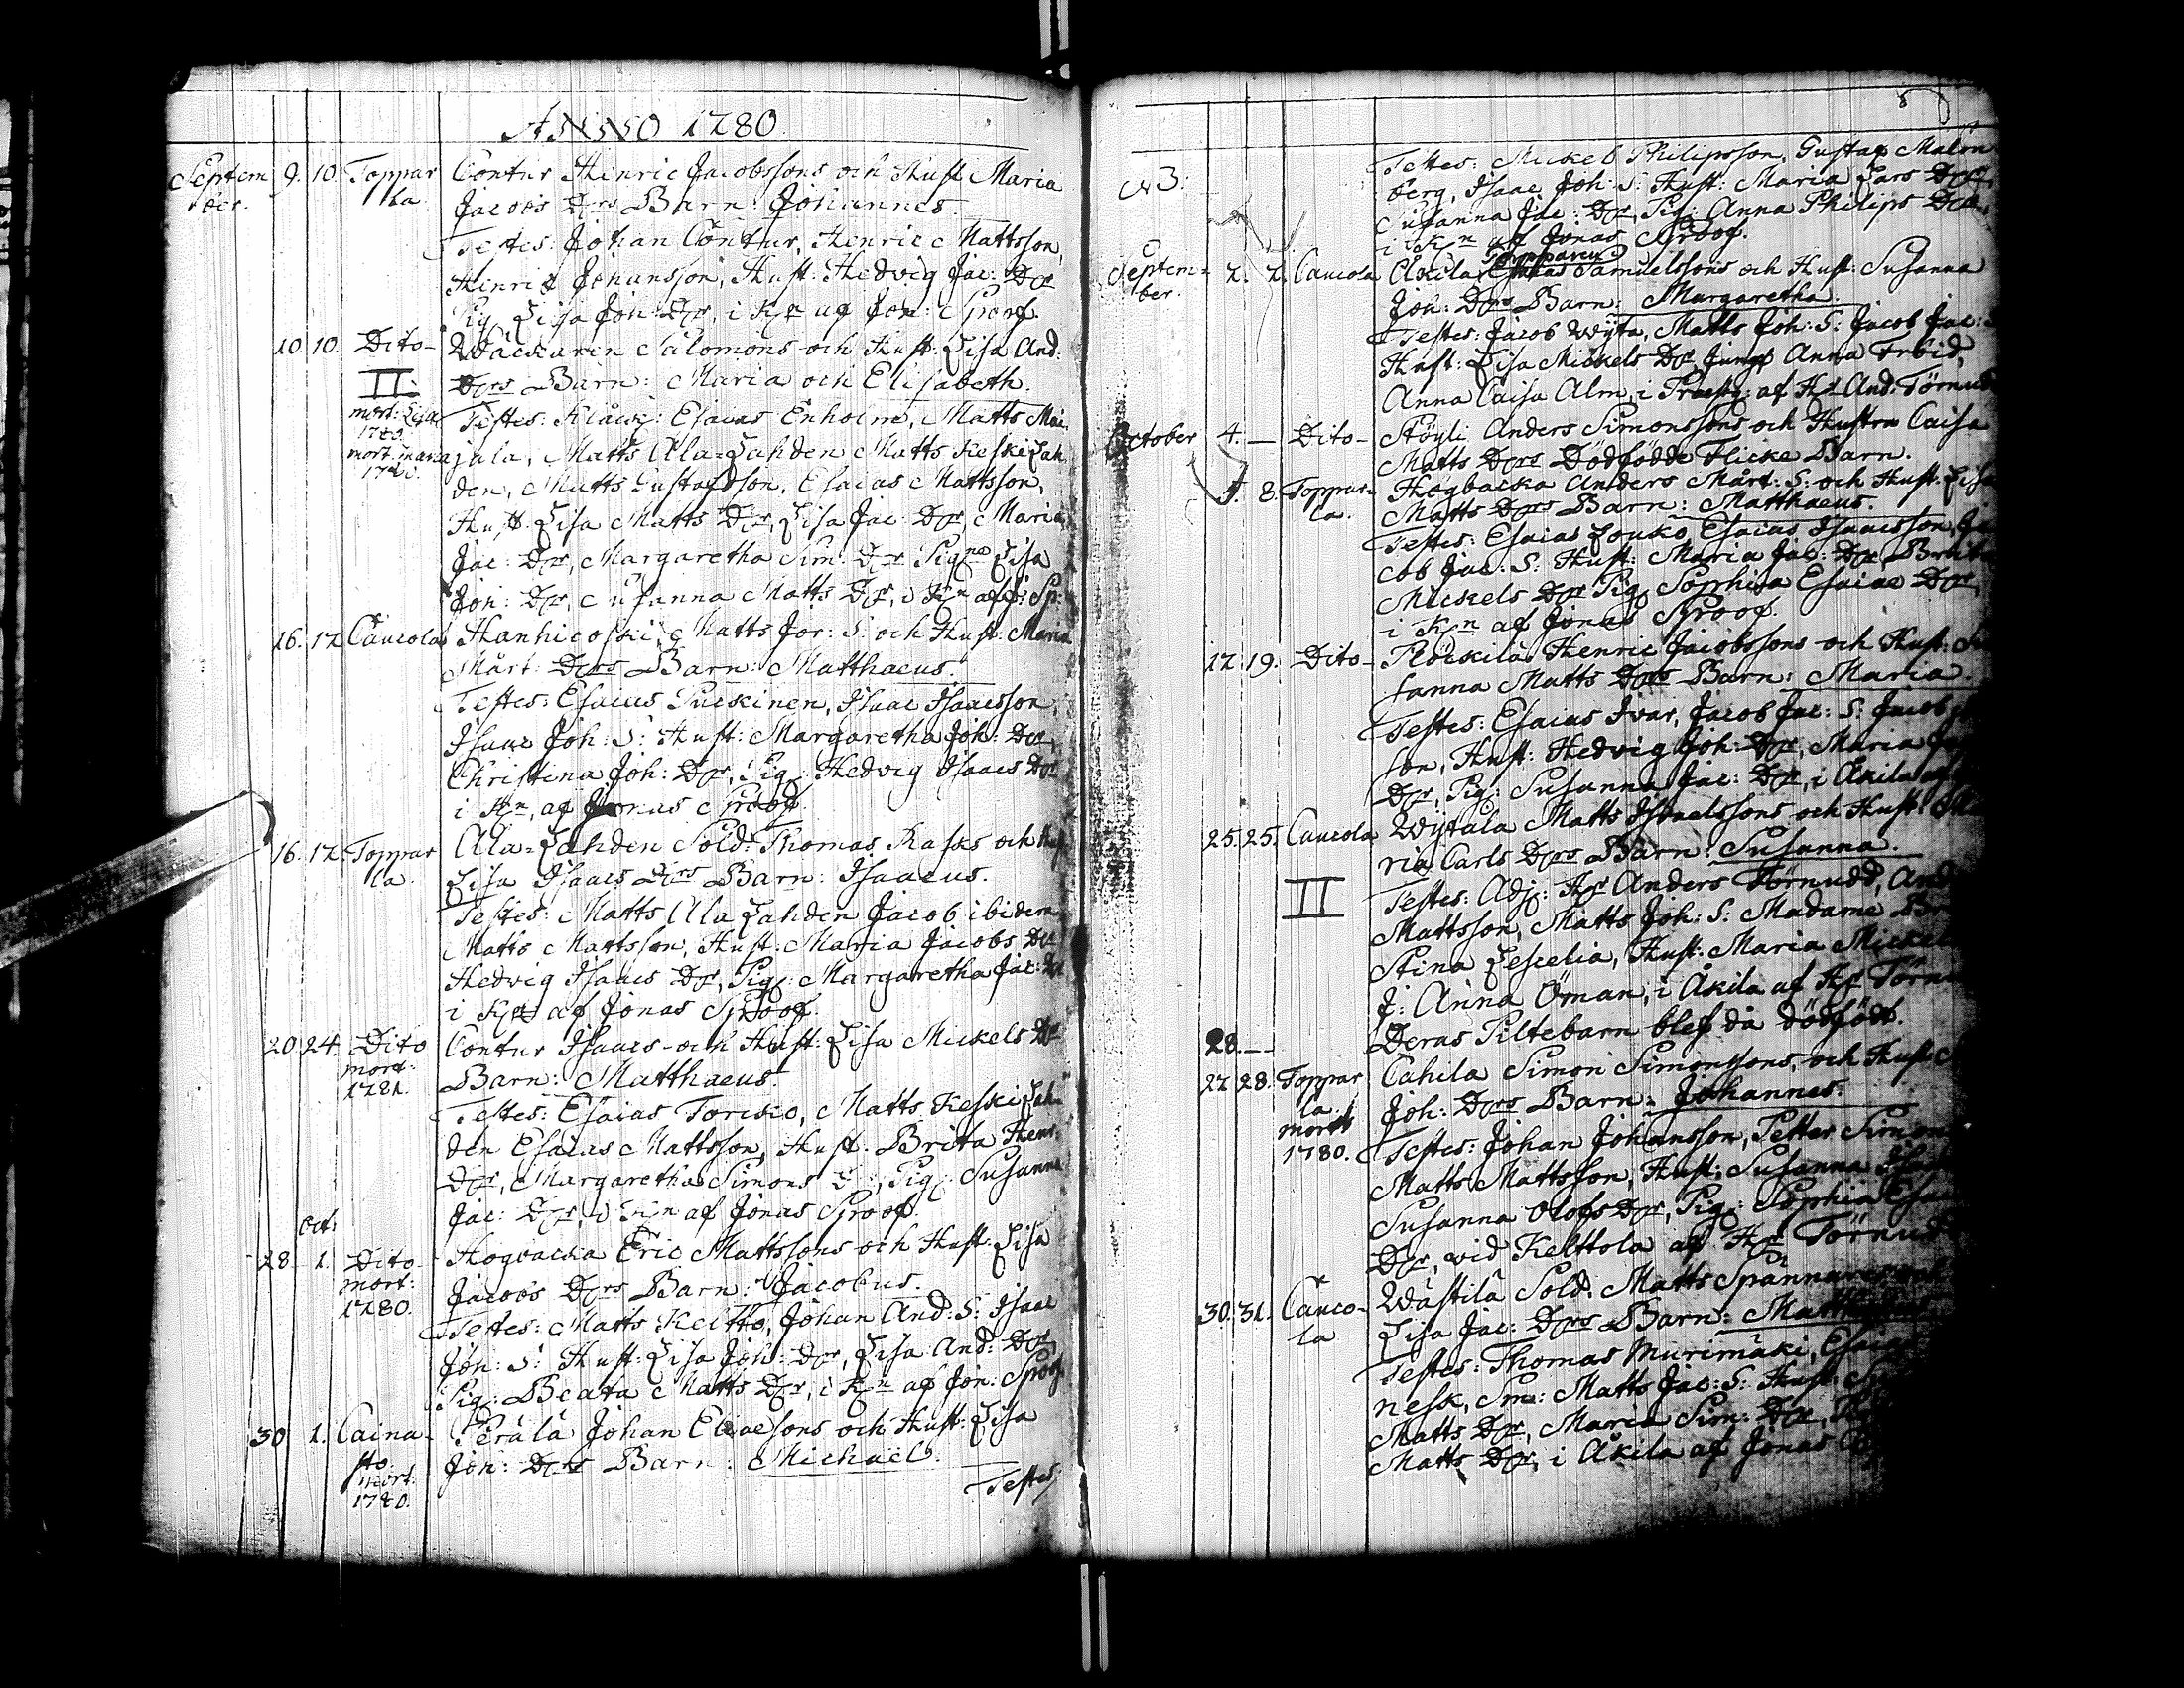 ANNO 1780
Septem 9. 10. Toppar Contur Henric Jacobssons och Hust Maria
ber. la. Jacobs Dors Barn Johannes.
Testes: Johan Contur, Henric Mattsson,
Henric Johansson, Hust: Hedvig Jac: Dor
Pig. Lisa Joh: Dor, i Kn af Jon: Sproof.
10. 10. Dito- Wäckärin Salomons och Hust: Lisa And:
II. Dors Barn: Maria och Elisabeth.
mort: Lisa Testes: Esaias Enholm, Matts
1780.
mort. Maria jala, Matts Ala-Lahden Matts Keski Lah
1780. den, Matts Gustafsson, Esaias Mattsson,
Hust. Lisa Matts Dor, Lisa Jac: Dor, Maria
Jac: Dor, Margaretha Sim: Dor Lisa
Joh: Dor, Susanna Matts Dor, i Kn af
16. 17. Caucola Hanhicoski, Matts Jor: S: och Hust: Maria
Mårt: Dors Barn: Matthaeus.
Testes: Esaias Puskinen, Isaac Isaacsson,
Isaac Joh: S: Hust: Margaretha Joh: Dor,
Christina Joh: Dor, Pig: Hedvig Isaacs Dor
i Kn, af Jonas Sproof.
16. 17. Toppar Ala-Lahden Sold: Thomas Rasks och
la. Lisa Isaacs Dors Barn: Isaacus.
Testes: Matts Ala Lahden Jacob ibidem
Matts Mattsson, Hust: Maria Jacobs Dor
Hedvig Isaacs Dor, Pig: Margaretha Jac: Dor
i Kn af Jonas Sproof.
20. 24. Dito Contur Isaacs och Hust: Lisa Mickels Dor
mort: Barn: Matthaeus.
1781.
Testes: Esaias Torcko, Matts Keski Lah
den Esaias Mattsson, Hust. Brita Henr:
Dor, Margaretha Simons D:, Pig: Susanna
Jac: Dor, i Kn af Jonas Sproof.
Oct:
28. 1. Dito- Högbacka Eric Mattssons och Hust: Lisa
mort: Jacobs Dors Barn: Jacobus.
1780.
Testes: Matts Keltto, Johan And: S: Isaac
Joh: S: Hust: Lisa Joh: Dor, Lisa And: Dor,
Pig: Beata Matts Dor, i Kn af Jon: Sproof.
30 1. Caina- Perälä Johan Eliaesons och Hust: Lisa
sto. Joh: Dors Barn: Michaël.
mort:
1780.
Testes
N3: Testes: Mickel Philipsson, Gustaf Malm
berg, Isaac Joh: S: Hust: Maria Lars Dor,
Susanna Jac: Dor, Pig: Anna Philips Dor,
i Kn af Jonas Sproof.
Septem- 2. 2. Caucola Äkilä Esaias Samuelssons och Hust: Susanna
ber. Joh: Dors Barn: Margaretha.
Testes: Jacob Wyta, Matts Joh: S: Jacob Jac:
Hust: Lisa Mickels Dor, Jungf Anna
Anna Caisa Alm, i Prestg: af Hr And: Törnudd
October 4. — Dito- Röyli Anders Simonssons och Hustru Caisa
Matts Dors Dödfödde Flicke Barn.
8. Toppar- Högbacka Anders Mårt: S: och Hust: Lisa
la. Matts Dors Barn: Matthaeus.
Testes: Esaias Louko, Esaias Isaacsson, Ja
cob Jac: S: Hust: Maria Jac: Dor, Brita
Mickels Dor Pig: Sophia Esaiae Dor,
i Kn af Jonas Sproof.
17. 19. Dito- Henric Jacobssons och Hust: Su
sanna Matts Dors Barn: Maria.
Testes: Esaias Ivar, Jacob Jac: S: Jacob
son, Hust: Hedvig Joh: Dor, Maria
Dor, Pig: Susanna Jac: Dor, i Äkilä af
25. 25. Caucola Wytala Matts Israelssons och Hust: Ma
ria Carls Dors Barn: Susanna.
II Testes: Adj: Hr Anders Törnudd, And
Mattsson, Matts Joh: S: Madame
Stina Lescelia, Hust: Maria Mickels
J: Anna Öman, i Äkilä af Hr Törnu
28.— Deras Piltebarn blef då dödfödt.
27. 28. Toppar Cahila Simon Simonssons och Hust
la Joh: Dors Barn: Johannes.
mort
1780. Testes: Johan Johansson, Petter Simon
Matts Mattsson, Hust: Susanna
Susanna Olofs Dor, Pig: Sophia Esai
Dor, wid Kelttola af Hr Törnudd
30. 31. Cauco- Wästilä Sold: Matts Spännares
la Lisa Jac: Dors Barn: Matthaeus
Testes: Thomas Murimäki, Esaias
nesk, Sm: Matts Jac: S: Hust:
Matts Dor, Maria Sim: Dor,
Matts Dor, i Äkilä af Jonas